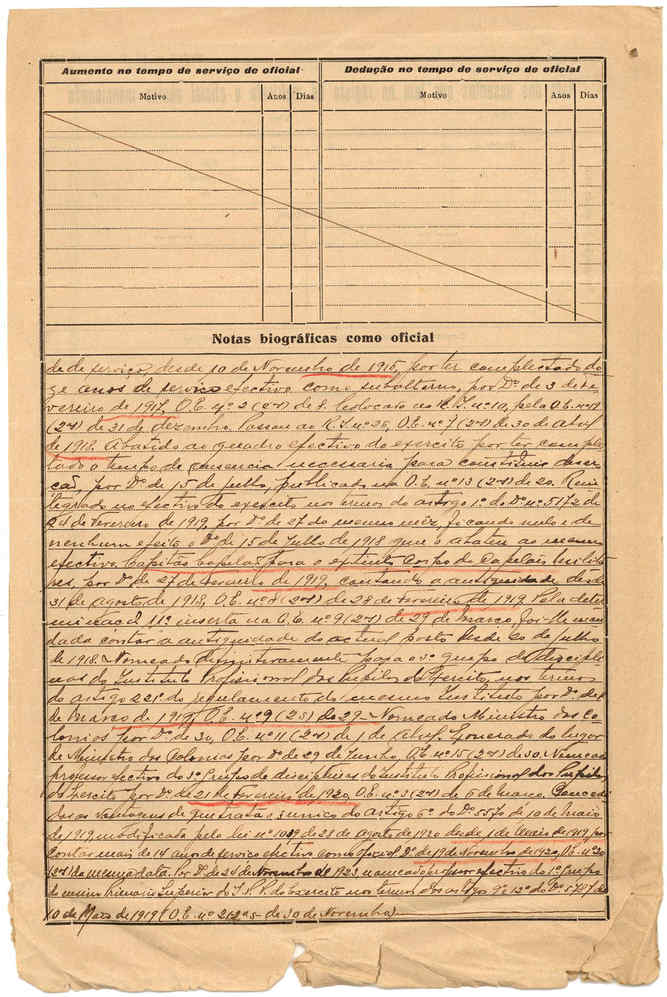 Aumento no tempo de serviço de oficial
Dedução no tempo de serviço de oficial
Motivo Anos Dias
Motivo Anos Dias
Notas biográficas como oficial
de de serviço, desde 10 de Novembro de 1915, por ter completado do
ze anos de serviço efectivo como subalterno, por Dº de 3 de Fe
vereiro de 1917, O.E. nº 2 (2ª) de 8. Colocado no R.I. nº 10, pela O.E. nº
(2ª) de 31 de dezembro. Passou ao R.I. nº 28, O.E. nº 7 (2ª) de 30 de Abril
de 1918. Abatido ao quadro efectivo do exercito por ter comple
tado o tempo de ausencia necessario para constituir deser
ção, por Dº de 15 de Julho, publicado na O.E. nº 13 (2ª) de 20. Rein
tegrado no efectivo do exercito nos termos do artigo 1º do Dº nº 5172 de
24 de Fevereiro de 1919, por Dº de 27 do mesmo mez, ficando nulo e de
nenhum efeito o Dº de 15 de Julho de 1918 que o abateu ao mesmo
efectivo. Capitão Capelão para o extinto Corpo de Capelães Milita
res, por Dº de 27 de Fevereiro de 1919, contando a antiguidade desde
31 de agosto de 1918, O.E. nº (2ª) de 28 de Fevereiro de 1919. Pela deter
minação 11ª inserta na O.E. nº 9 (2ª) de 29 de Março, foi-lhe man
dada contar a antiguidade do actual posto desde 20 de Julho
de 1918. Nomeado definitivamente para o grupo de discipli
nas do Instituto Profissional dos Pupilos do Exercito, nos termos
do artigo 221º do regulamento do mesmo Instituto por Dº de
de Março de 1919, O.E. nº 9 (2ª) de 29. Nomeado Ministro das Co
lonias por Dº de 30, O.E. nº 11 (2ª) de 1 de Abril. Exonerado do lugar
de Ministro das Colonias por Dº de 29 de Junho, O.E. nº 15 (2ª) de 30. Nomeado
professor efectivo do 3º Grupo de disciplinas do Instituto Profissional dos Pupilos
do Exercito por Dº de 21 de Fevereiro de 1920, O.E. nº 3 (2ª) de 6 de Março. Concedi
das as vantagens de que trata o unico do artigo 6º do Dº 5570 de 10 de Maio
de 1919, modificado pela lei nº 1039 de 28 de Agosto de 1920 desde 1 de Maio de 1919, por
contar mais de 14 anos de serviço efectivo como oficial. Dº de 19 de Novembro de 1920, O.E. nº 20
(2ª) da mesma data. Por Dº de 24 de Novembro de 1923 nomeado professor efectivo do 1º grupo
de ensino Primario Superior do I.P.P. do Exercito nos termos do artigo 12º do Dº 5787 de
10 de Maio de 1919 (O.E. nº de 30 de Novembro)